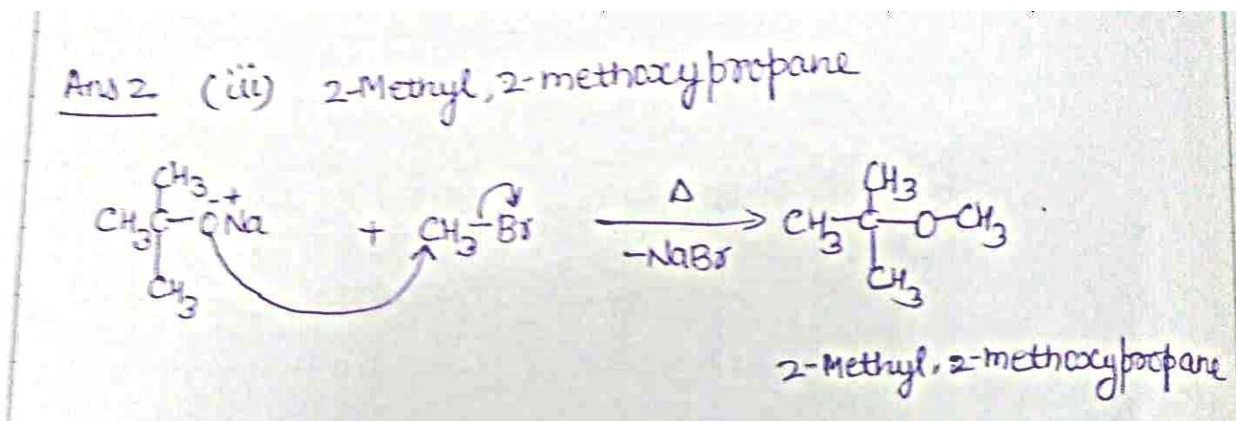 Ans 2 (iii) 2-Methyl, 2-methoxypropane
CH3 CH3
CH3-C-O⁻Na⁺ + CH3-Br Δ CH3-C-O-CH3
-NaBr
CH3 CH3
2-Methyl, 2-methoxypropane